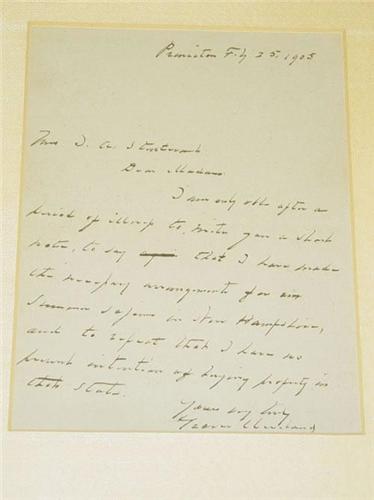 Princeton Feby 25, 1905
Mrs D. A.
Dear Madam.
I am only able after a
period of illness to, write you a short
note, to say again that I have made
the necessary arrangements for our
Summer sojourn in New Hampshire,
and to repeat that I have no
present intention of buying property in
that State.
Yours very truly
Grover Cleveland